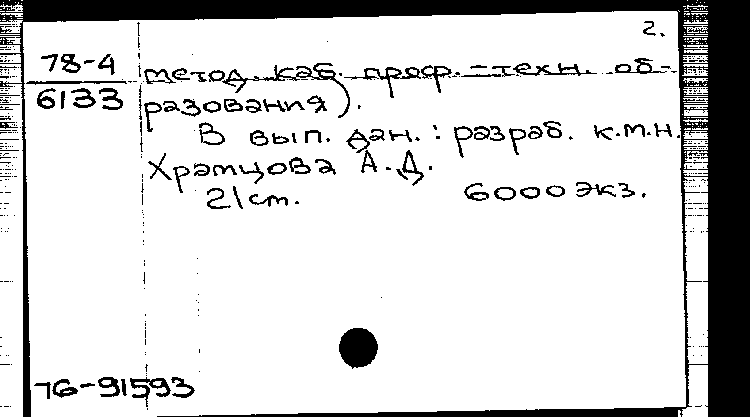 2.
78-4 метод. каб. проф.-техн. об-
6133 разования).
В вып. дан.: разраб. к.м.н.
Храмцова А.Д.
21 см. 6000 экз.
76-91593